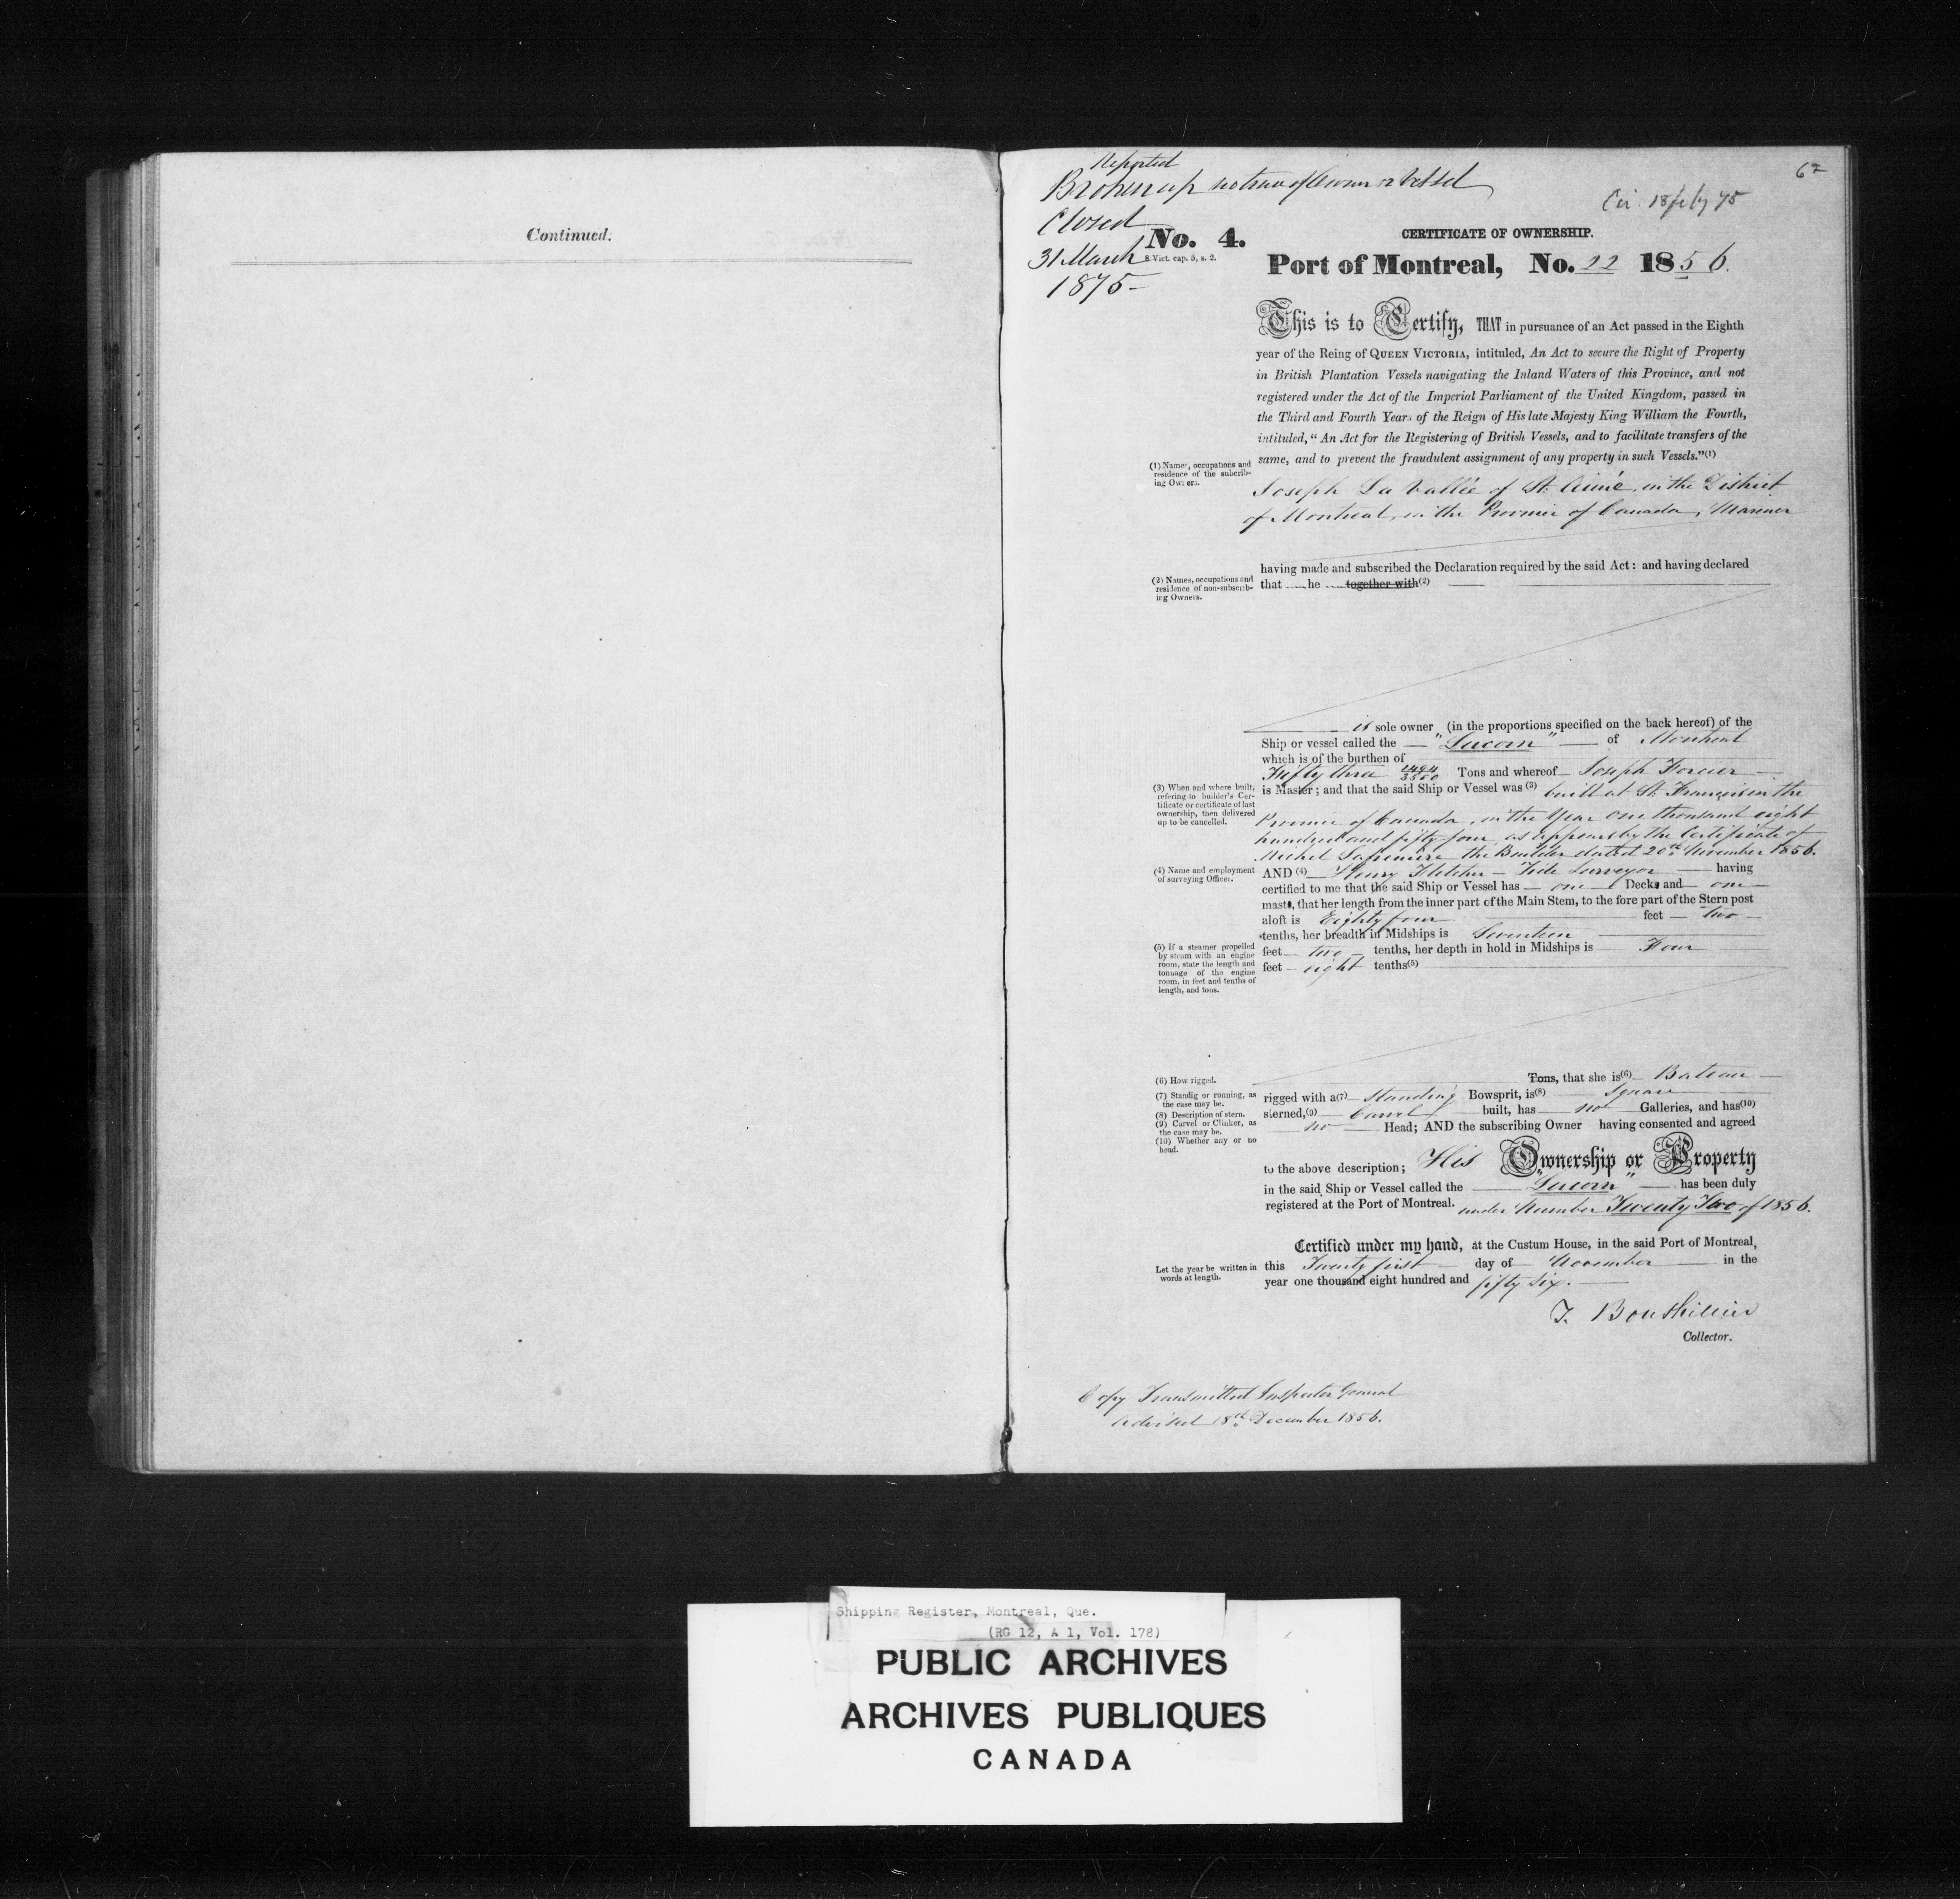 Continued.
Reported
Broken up no trace of Owner or Vessel
Closed
31 March
1875-
62
Cir. 18 feby 75
No. 4.
8 Vict. cap. 5, s. 2.
CERTIFICATE OF OWNERSHIP.
Port of Montreal, No. 22 1856.
This is to Certify, THAT in pursuance of an Act passed in the Eighth
year of the Reing of QUEEN VICTORIA, intituled, An Act to secure the Right of Property
in British Plantation Vessels navigating the Inland Waters of this Province, and not
registered under the Act of the Imperial Parliament of the United Kingdom, passed in
the Third and Fourth Years of the Reign of His late Majesty King William the Fourth,
intituled, "An Act for the Registering of British Vessels, and to facilitate transfers of the
same, and to prevent the fraudulent assignment of any property in such Vessels."(1)
(1) Names, occupations and
residence of the subcrib-
ing Owners.
Joseph La Vallée of St. Aimé, in the District
of Montreal, in the Province of Canada, Mariner
having made and subscribed the Declaration required by the said Act: and having declared
that he together with(2)
(2) Names, occupations and
residence of non-subscrib-
ing Owners.
is sole owner (in the proportions specified on the back hereof) of the
Ship or vessel called the "Lucorn" of Montreal
which is of the burthen of
Fifty three 2484/3500 Tons and whereof Joseph Forcier
is Master; and that the said Ship or Vessel was (3) built at St. Francis in the
Province of Canada, in the Year One thousand eight
hundred and fifty four, as appears by the Certificate of
Michel the Builder dated 20th November 1856.
(3) When and where built,
refering to builder's Cer-
tificate or certificate of last
ownership, then delivered
up to be cancelled.
(4) Name and employment
of surveying Officer.
AND (4) Henry Fletcher - Tide Surveyor having
certified to me that the said Ship or Vessel has one Decks and one
masts, that her length from the inner part of the Main Stem, to the fore part of the Stern post
aloft is Eighty four feet two
tenths, her breadth in Midships is Seventeen
feet two tenths, her depth in hold in Midships is Four
feet eight tenths(5)
(5) If a steamer propelled
by steam with an engine
room, state the length and
tonnage of the engine
room, in feet and tenths of
length, and tons.
Tons, that she is(6) Bateau
rigged with a(7) Standing Bowsprit, is(8) Square
sterned,(9) Carvel built, has no Galleries, and has(10)
no Head; AND the subscribing Owner having consented and agreed
(6) How rigged.
(7) Standig or running, as
the case may be.
(8) Description of stern.
(9) Carvel or Clinker, as
the case may be.
(10) Whether any or no
head.
to the above description; His Ownership or Property
in the said Ship or Vessel called the "Lucorn" has been duly
registered at the Port of Montreal. under Number Twenty Two of 1856.
Certified under my hand, at the Custum House, in the said Port of Montreal,
this Twenty first day of November in the
year one thousand eight hundred and fifty six.
Let the year be written in
words at length.
T. Bouthillier
Collector.
Copy Transmitted Inspector General
18th December 1856.
Shipping Register, Montreal, Que.
(RG 12, A 1, Vol. 178)
PUBLIC ARCHIVES
ARCHIVES PUBLIQUES
CANADA